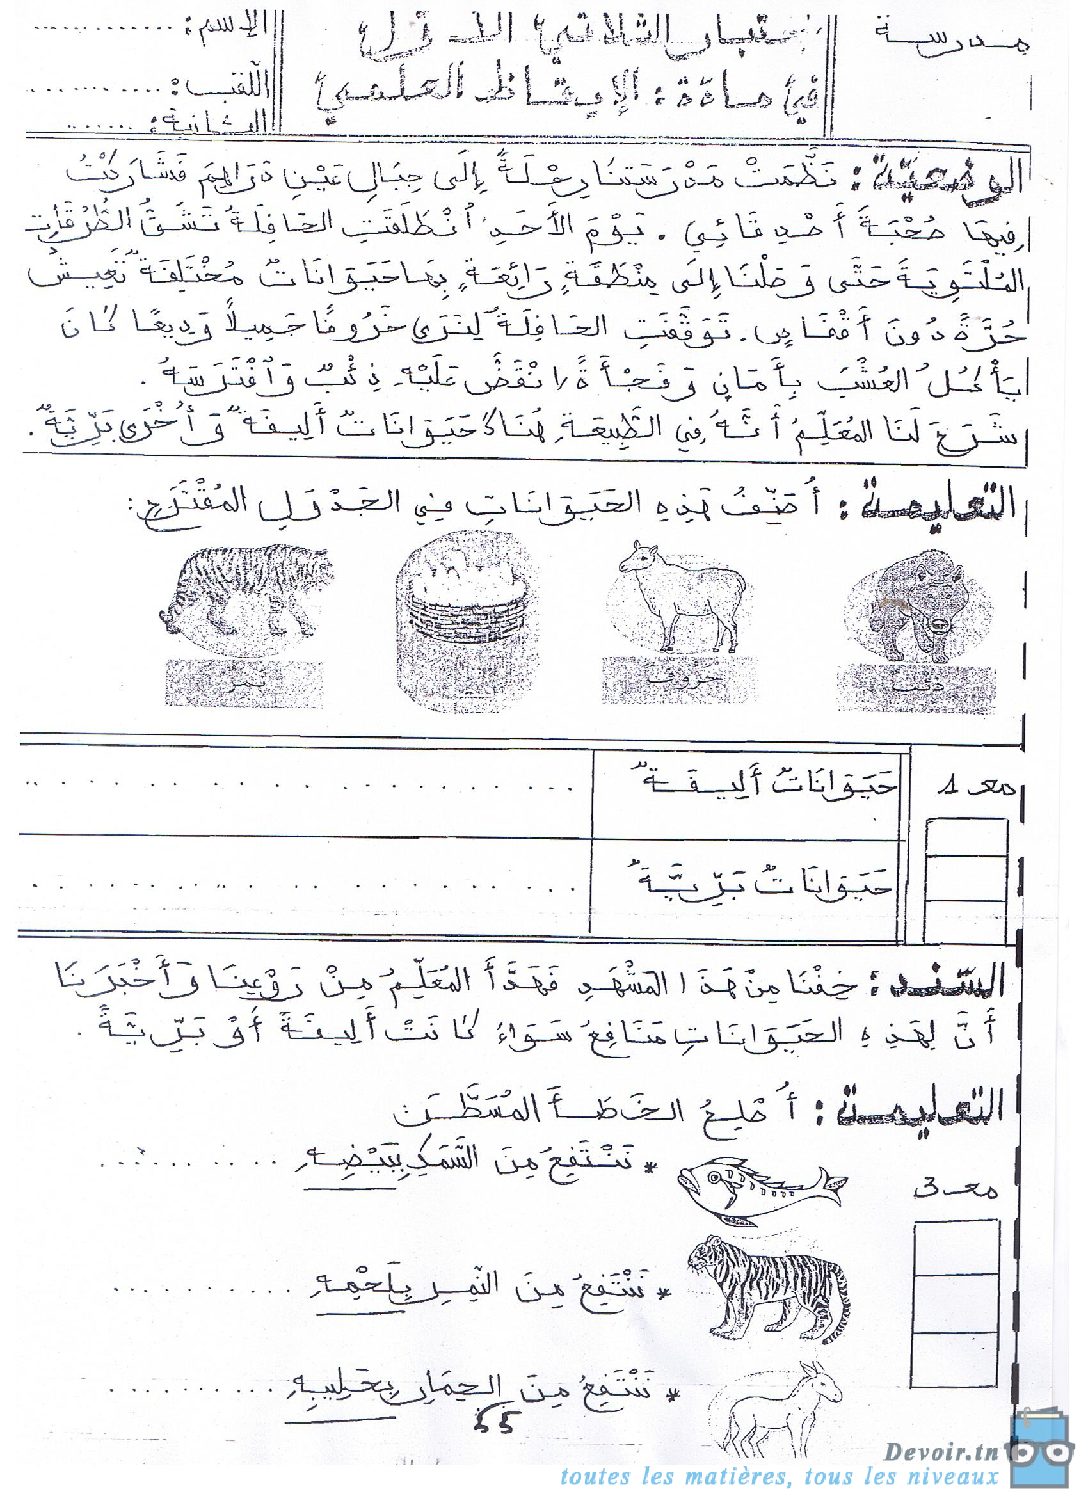 مدرسة
إختبار الثلاثي الأول
في مادة : الإيقاظ العلمي
الإسم: ............
اللقب: ............
الثانية: ......
الوضعيّة: نَظَّمَتْ مَدْرَسَتنَا رِحْلَةً إِلَى جِبَالِ عَيْنِ دَرَاهِمَ فَشَارَكْتُ
فِيهَا صُحْبَةَ أَصْدِقَائِي . يَوْمَ الأَحَدِ اُنْطَلَقَتِ الحَافِلَةُ تَشُقُّ الطُّرُقَاتِ
المُلْتَوِيَةَ حَتَّى وَصَلْنَا إِلَى مِنْطَقَةٍ رَائِعَةٍ بِهَا حَيَوَانَاتٌ مُخْتَلِفَةٌ تَعِيشُ
حُرَّةً دُونَ أَقْفَاصٍ. تَوَقَّفَتِ الحَافِلَةُ لِنَرَى خَرُوفًا جَمِيلاً وَدِيعًا كَانَ
يَأْكُلُ العُشْبَ بِأَمَانٍ وَفَجْأَةً اِنْقَضَّ عَلَيْهِ ذِئْبٌ وَاُفْتَرَسَهُ .
شَرَحَ لَنَا المُعَلِّمُ أَنَّهُ فِي الطَّبِيعَةِ هُنَاكَ حَيَوَانَاتٌ أَلِيفَةٌ وَأُخْرَى بَرِّيَّةٌ .
التعليمة : أُصَنِّفُ هَذِهِ الحَيَوَانَاتِ فِي الجَدْوَلِ المُقْتَرَحِ:
ذئب
خروف
نمر
مع 1
حَيَوَانَاتٌ أَلِيفَةٌ
حَيَوَانَاتٌ بَرِّيَّةٌ
السّند: خِفْنَا مِنْ هَذَا المَشْهَدِ فَهَدَّأَ المُعَلِّمُ مِنْ رَوْعِنَا وَأَخْبَرَنَا
أَنَّ لِهَذِهِ الحَيَوَانَاتِ مَنَافِعَ سَوَاءً كَانَتْ أَلِيفَةً أَوْ بَرِّيَّةً .
التعليمة : أُصْلِحُ الخَطَأَ المُسَطَّرَ
مع 3
* نَنْتَفِعُ مِنَ السَّمَكِ بِبَيْضِهِ ..........
* نَنْتَفِعُ مِنَ النَّمِرِ بِلَحْمِهِ ..........
* نَنْتَفِعُ مِنَ الحِمَارِ بِحَلِيبِهِ ..........
55
Devoir.tn
toutes les matières, tous les niveaux